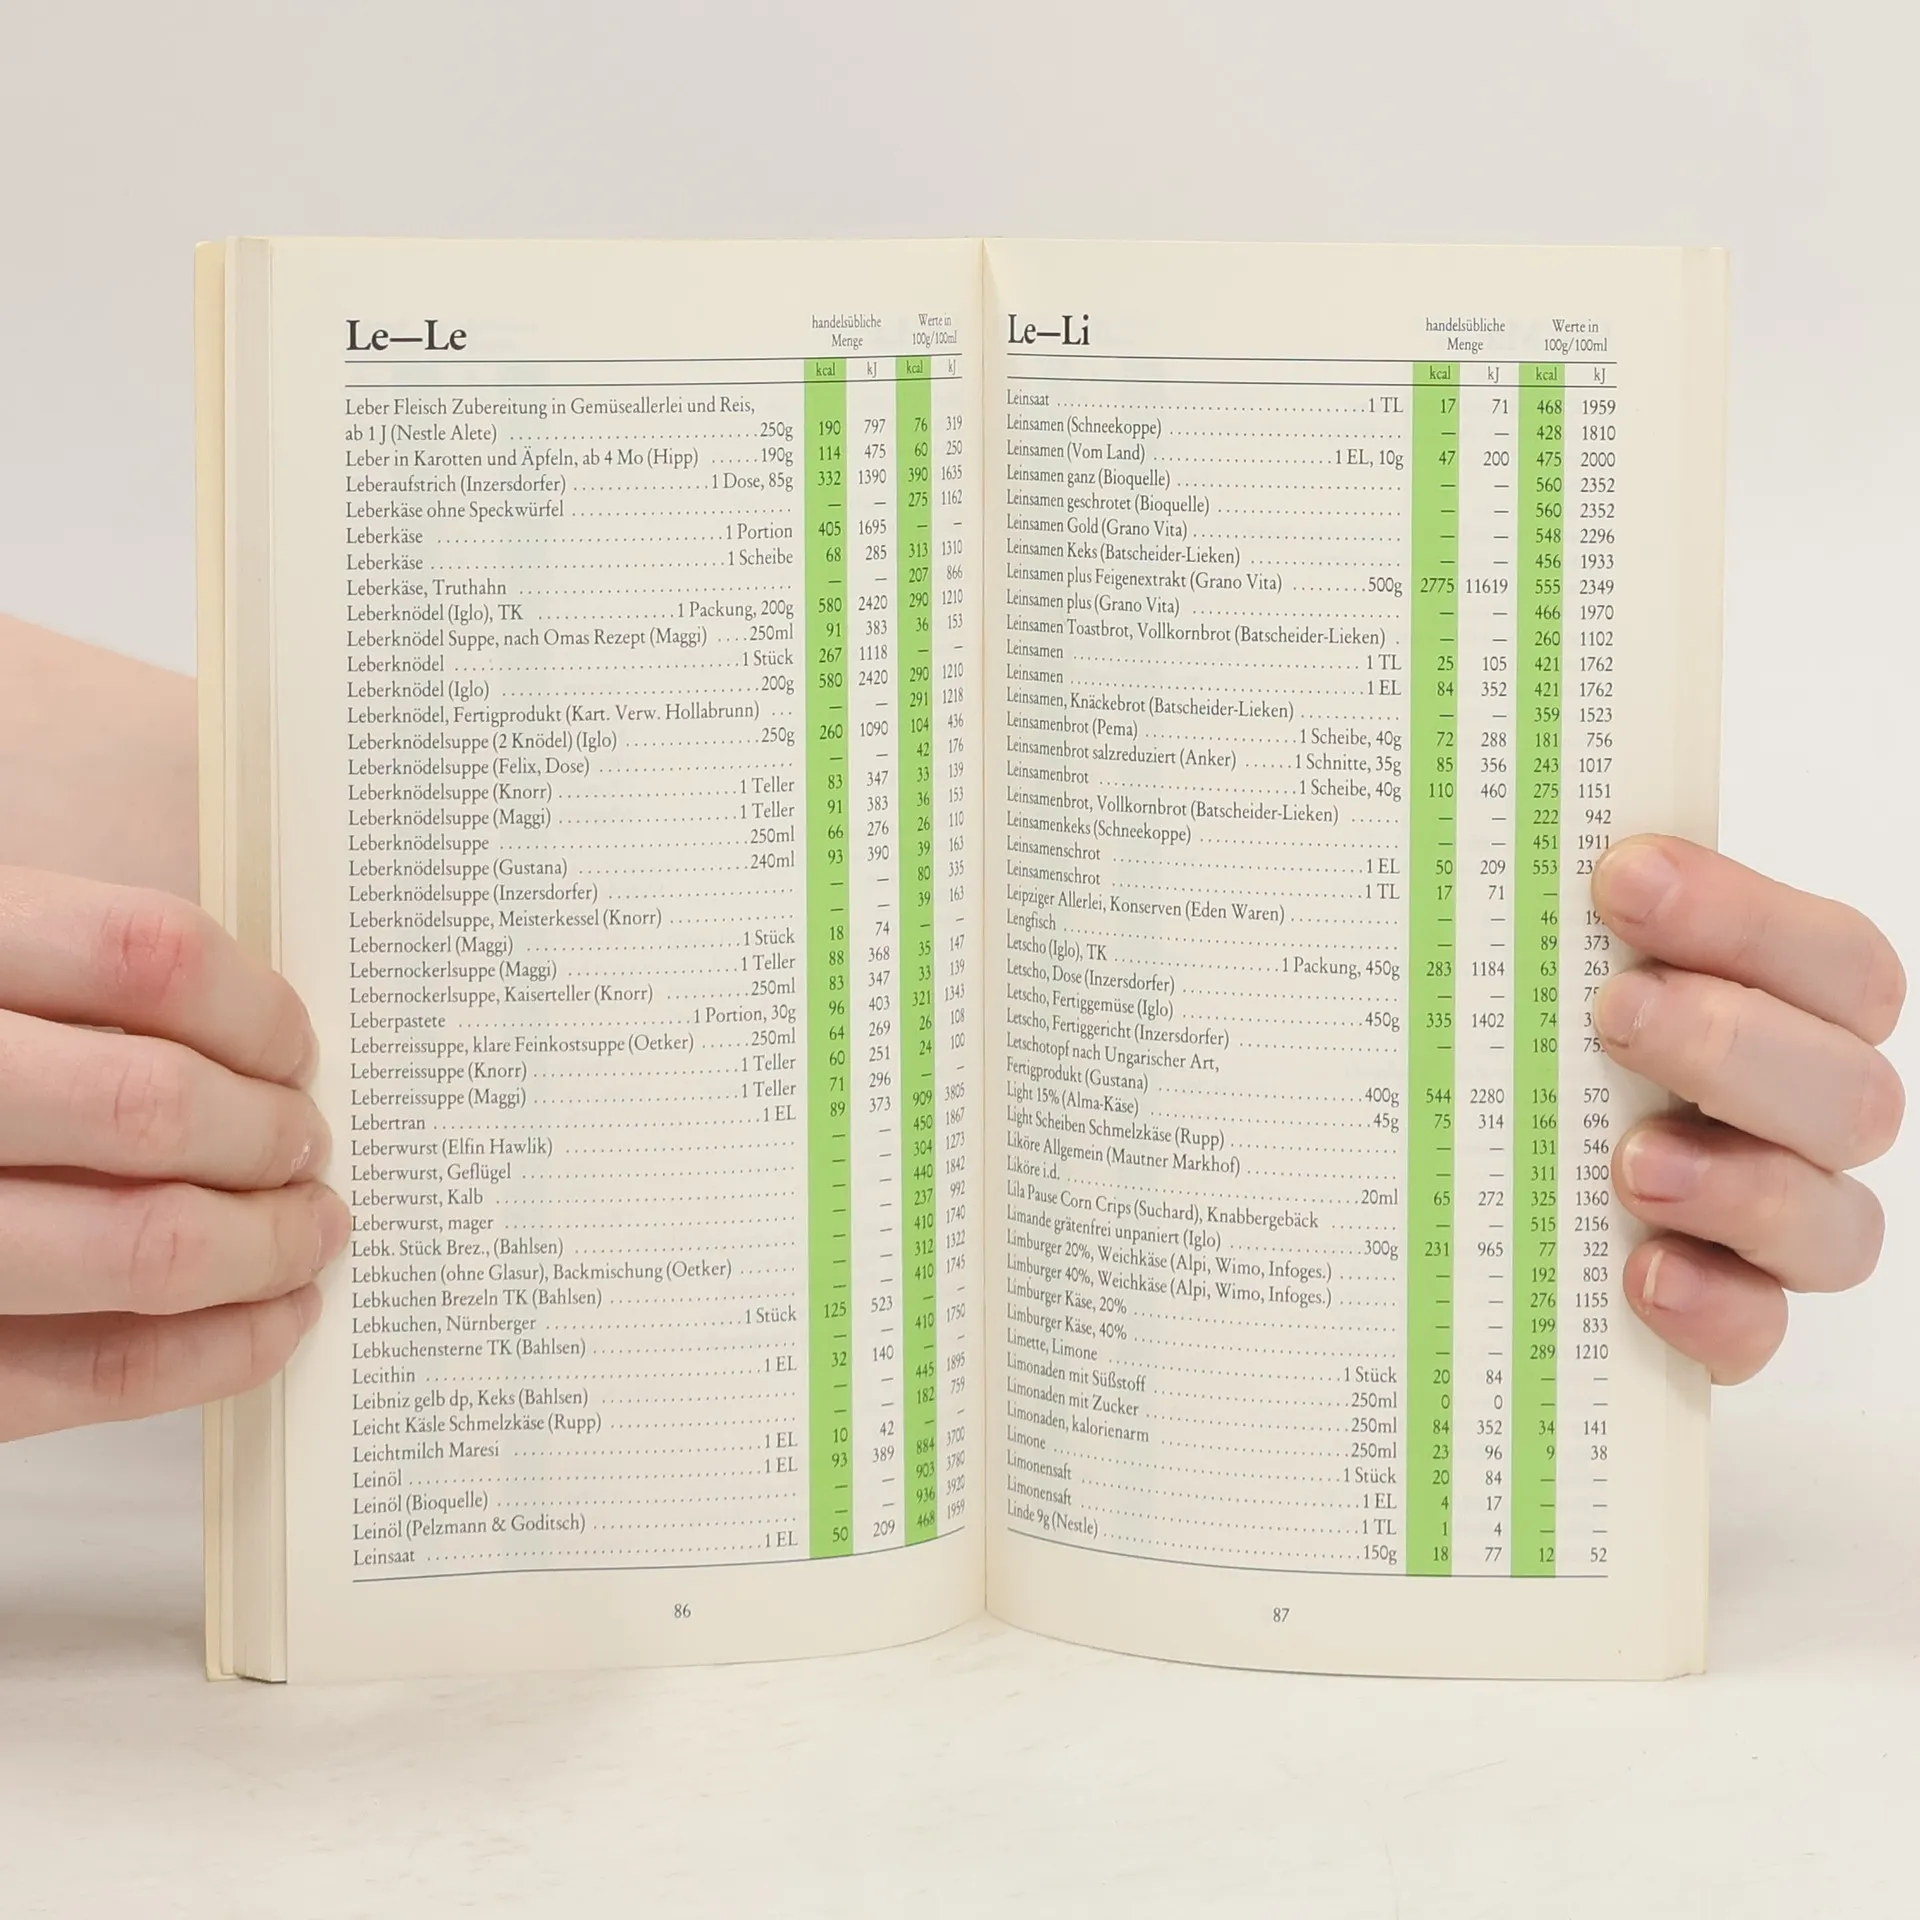 Le—Le
handelsübliche Menge
Werte in 100g/100ml
kcal kJ kcal kJ
Leber Fleisch Zubereitung in Gemüseallerlei und Reis,
ab 1 J (Nestle Alete) ..... 250g 190 797 76 319
Leber in Karotten und Äpfeln, ab 4 Mo (Hipp) ..... 190g 114 475 60 250
Leberaufstrich (Inzersdorfer) ..... 1 Dose, 85g 332 1390 390 1635
Leberkäse ohne Speckwürfel ..... — — 275 1162
Leberkäse ..... 1 Portion 405 1695 — —
Leberkäse ..... 1 Scheibe 68 285 313 1310
Leberkäse, Truthahn ..... — — 207 866
Leberknödel (Iglo), TK ..... 1 Packung, 200g 580 2420 290 1210
Leberknödel Suppe, nach Omas Rezept (Maggi) ..... 250ml 91 383 36 153
Leberknödel ..... 1 Stück 267 1118 — —
Leberknödel (Iglo) ..... 200g 580 2420 290 1210
Leberknödel, Fertigprodukt (Kart. Verw. Hollabrunn) ... — — 291 1218
Leberknödelsuppe (2 Knödel) (Iglo) ..... 250g 260 1090 104 436
Leberknödelsuppe (Felix, Dose) ..... — — 42 176
Leberknödelsuppe (Knorr) ..... 1 Teller 83 347 33 139
Leberknödelsuppe (Maggi) ..... 1 Teller 91 383 36 153
Leberknödelsuppe ..... 250ml 66 276 26 110
Leberknödelsuppe (Gustana) ..... 240ml 93 390 39 163
Leberknödelsuppe (Inzersdorfer) ..... — — 80 335
Leberknödelsuppe, Meisterkessel (Knorr) ..... — — 39 163
Lebernockerl (Maggi) ..... 1 Stück 18 74 — —
Lebernockerlsuppe (Maggi) ..... 1 Teller 88 368 35 147
Lebernockerlsuppe, Kaiserteller (Knorr) ..... 250ml 83 347 33 139
Leberpastete ..... 1 Portion, 30g 96 403 321 1343
Leberreissuppe, klare Feinkostsuppe (Oetker) ..... 250ml 64 269 26 108
Leberreissuppe (Knorr) ..... 1 Teller 60 251 24 100
Leberreissuppe (Maggi) ..... 1 Teller 71 296 — —
Lebertran ..... 1 EL 89 373 909 3805
Leberwurst (Elfin Hawlik) ..... — — 450 1867
Leberwurst, Geflügel ..... — — 304 1273
Leberwurst, Kalb ..... — — 440 1842
Leberwurst, mager ..... — — 237 992
Lebk. Stück Brez., (Bahlsen) ..... — — 410 1740
Lebkuchen (ohne Glasur), Backmischung (Oetker) ..... — — 312 1322
Lebkuchen Brezeln TK (Bahlsen) ..... — — 410 1745
Lebkuchen, Nürnberger ..... 1 Stück 125 523 — —
Lebkuchensterne TK (Bahlsen) ..... — — 410 1750
Lecithin ..... 1 EL 32 140 — —
Leibniz gelb dp, Keks (Bahlsen) ..... — — 445 1895
Leicht Käsle Schmelzkäse (Rupp) ..... — — 182 759
Leichtmilch Maresi ..... 1 EL 10 42 — —
Leinöl ..... 1 EL 93 389 884 3700
Leinöl (Bioquelle) ..... — — 903 3780
Leinöl (Pelzmann & Goditsch) ..... — — 936 3920
Leinsaat ..... 1 EL 50 209 468 1959
86
Le—Li
handelsübliche Menge
Werte in 100g/100ml
kcal kJ kcal kJ
Leinsaat ..... 1 TL 17 71 468 1959
Leinsamen (Schneekoppe) ..... — — 428 1810
Leinsamen (Vom Land) ..... 1 EL, 10g 47 200 475 2000
Leinsamen ganz (Bioquelle) ..... — — 560 2352
Leinsamen geschrotet (Bioquelle) ..... — — 560 2352
Leinsamen Gold (Grano Vita) ..... — — 548 2296
Leinsamen Keks (Batscheider-Lieken) ..... — — 456 1933
Leinsamen plus Feigenextrakt (Grano Vita) ..... 500g 2775 11619 555 2349
Leinsamen plus (Grano Vita) ..... — — 466 1970
Leinsamen Toastbrot, Vollkornbrot (Batscheider-Lieken) . — — 260 1102
Leinsamen ..... 1 TL 25 105 421 1762
Leinsamen ..... 1 EL 84 352 421 1762
Leinsamen, Knäckebrot (Batscheider-Lieken) ..... — — 359 1523
Leinsamenbrot (Pema) ..... 1 Scheibe, 40g 72 288 181 756
Leinsamenbrot salzreduziert (Anker) ..... 1 Schnitte, 35g 85 356 243 1017
Leinsamenbrot ..... 1 Scheibe, 40g 110 460 275 1151
Leinsamenbrot, Vollkornbrot (Batscheider-Lieken) ..... — — 222 942
Leinsamenkeks (Schneekoppe) ..... — — 451 1911
Leinsamenschrot ..... 1 EL 50 209 553
Leinsamenschrot ..... 1 TL 17 71 —
Leipziger Allerlei, Konserven (Eden Waren) ..... — — 46
Lengfisch ..... — — 89 373
Letscho (Iglo), TK ..... 1 Packung, 450g 283 1184 63 263
Letscho, Dose (Inzersdorfer) ..... — — 180
Letscho, Fertiggemüse (Iglo) ..... 450g 335 1402 74
Letscho, Fertiggericht (Inzersdorfer) ..... — — 180
Letschotopf nach Ungarischer Art,
Fertigprodukt (Gustana) ..... 400g 544 2280 136 570
Light 15% (Alma-Käse) ..... 45g 75 314 166 696
Light Scheiben Schmelzkäse (Rupp) ..... — — 131 546
Liköre Allgemein (Mautner Markhof) ..... — — 311 1300
Liköre i.d. ..... 20ml 65 272 325 1360
Lila Pause Corn Crips (Suchard), Knabbergebäck ..... — — 515 2156
Limande grätenfrei unpaniert (Iglo) ..... 300g 231 965 77 322
Limburger 20%, Weichkäse (Alpi, Wimo, Infoges.) ..... — — 192 803
Limburger 40%, Weichkäse (Alpi, Wimo, Infoges.) ..... — — 276 1155
Limburger Käse, 20% ..... — — 199 833
Limburger Käse, 40% ..... — — 289 1210
Limette, Limone ..... 1 Stück 20 84 — —
Limonaden mit Süßstoff ..... 250ml 0 0 — —
Limonaden mit Zucker ..... 250ml 84 352 34 141
Limonaden, kalorienarm ..... 250ml 23 96 9 38
Limone ..... 1 Stück 20 84 — —
Limonensaft ..... 1 EL 4 17 — —
Limonensaft ..... 1 TL 1 4 — —
Linde 9g (Nestle) ..... 150g 18 77 12 52
87